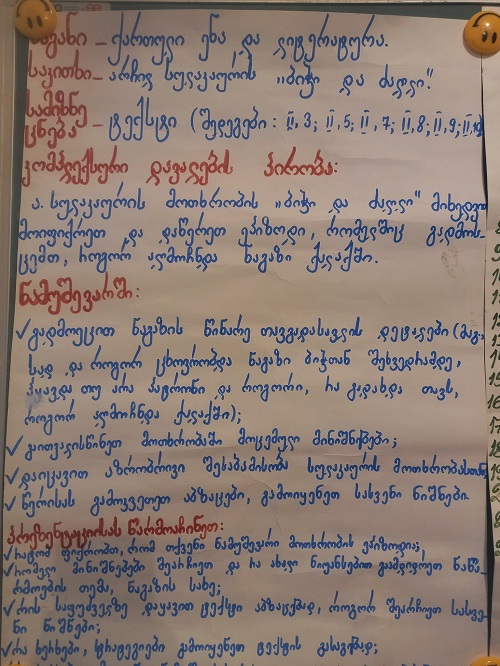 საგანი – ქართული ენა და ლიტერატურა.
საკითხი – არჩილ სულაკაურის „ბიჭი და ძაღლი“.
სამიზნე
ცნება – ტექსტი (შედეგები: II, 3; II, 5; II, 7; II, 8; II, 9; II, 10
კომპლექსური დავალების პირობა:
ა. სულაკაურის მოთხრობის „ბიჭი და ძაღლი“ მიხედვით
მოიფიქრეთ და დაწერეთ ეპიზოდი, რომელშიც გადმოს-
ცემთ, როგორ აღმოჩნდა ნაგაზი ქალაქში.
ნაშუშევარში:
✓გადმოეცით ნაგაზის წინარე თავგადასავლის დეტალები (მაგ.
სად და როგორ ცხოვრობდა ნაგაზი ბიჭთან შეხვედრამდე,
ჰყავდა თუ არა პატრონი და როგორი, რა გადახდა თავს,
როგორ აღმოჩნდა ქალაქში);
✓გაითვალისწინეთ მოთხრობაში მოცემული მინიშნებები;
✓დაიცავით აზრობრივი შესაბამისობა სულაკაურის მოთხრობასთან;
✓წერისას გამოკვეთეთ აბზაცები, გამოიყენეთ სასვენი ნიშნები.
პრეზენტაციისას წარმოაჩინეთ:
✓რატომ ფიქრობთ, რომ თქვენი ნამუშევარი მოთხრობის ეპიზოდია;
✓რომელი მინიშნებები შეარჩიეთ და რა ახალი ნიუანსებით გაამდიდრეთ ნაწა-
რმოების თემა, ნაგაზის სახე;
✓რის საფუძველზე დაყავით ტექსტი აბზაცებად, როგორ შეარჩიეთ სასვე-
ნი ნიშნები;
✓რა ხერხები, სტრატეგიები გამოიყენეთ ტექსტის გასაგებად;